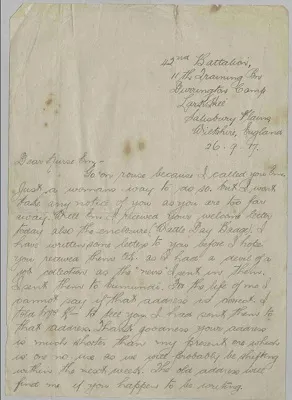 42nd Battalion,
11th Training Bn
Durrington Camp
Larkhill
Salisbury Plains
Wiltshire, England
26-9-17.
Dear Miss
So on rouse because I called you this
Just a womans way to do so. but I wont
take any notice of you as you are too far
away. Well I received your welcome letter
today also the enclosure, Badge. I
have written some letters to you before I hope
you received them as I had a
job collection as the "news" sent in them.
I sent them to For the life of me I
cannot say if that address is correct. I
to tell you I had sent them to
that address. Thank goodness your address
is much shorter than my present one which
is or no use so we will probably be shifting
within the next week. The old address will
find me if you happen to be writing.